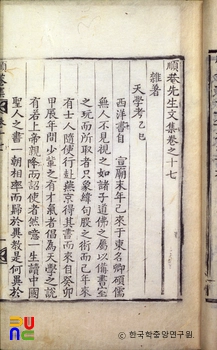 順菴先生文集卷之十七
雜著
天學考 乙巳
西洋書自 宣廟末年已來于東名卿碩儒
無人不見視之如諸子道佛之屬以備書室
之玩而所取者只象緯句股之術而已年來
有士人隨使行赴燕京得其書而來自癸卯
甲辰年間少輩之有才氣者倡爲天學之說
有若上帝親降而詔使者然噫一生讀中國
聖人之書一朝相率而歸於異教是何異於
順菴集
卷十七
한국학중앙연구원